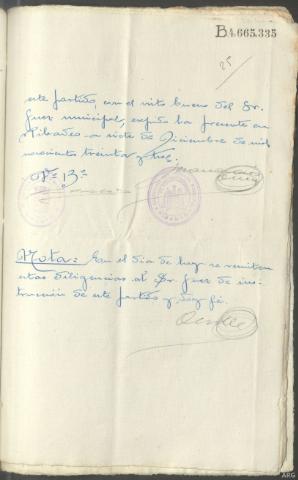 B4.665.335
25
este partido, con el visto bueno del Sr.
Juez municipal, expido la presente en
Ribadeo a siete de Diciembre de mil
novecientos treinta y tres.
Vº Bº
Nota: En el dia de hoy se remiten
estas diligencias al Sr. Juez de ins-
trucción de este partido y doy fé.
ARG